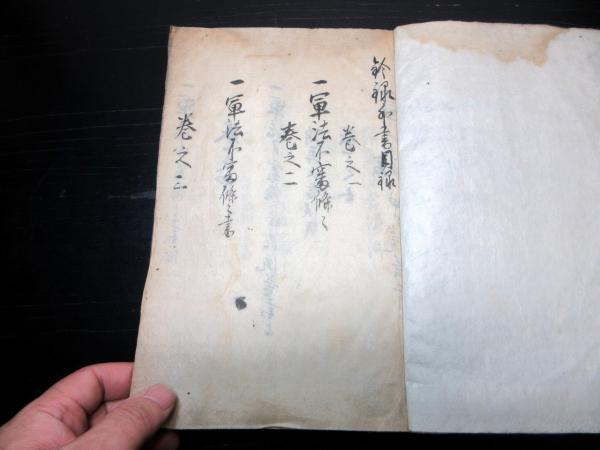 鈐録外書目録
巻之一
一軍法不審條〻
巻之二
一軍法不審條〻書
巻之三